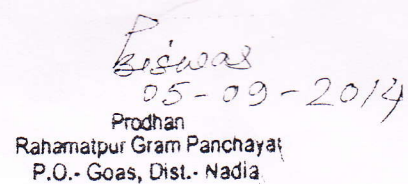 P Biswas
05-09-2014
Prodhan
Rahamatpur Gram Panchayat
P.O.- Goas, Dist.- Nadia